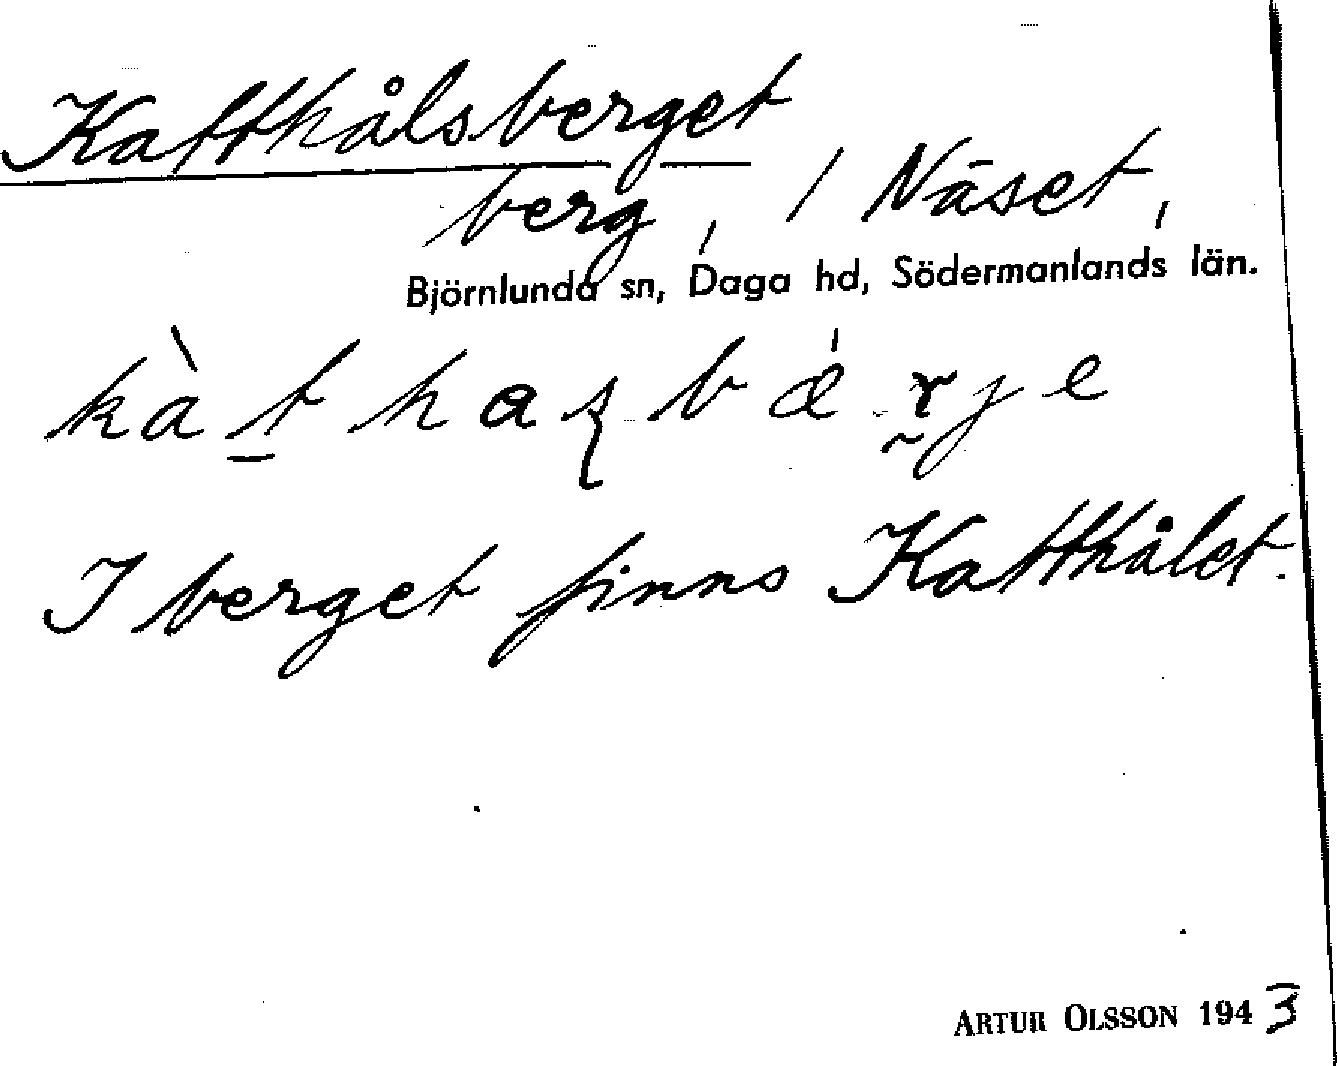 Katthålsberget
berg, 1 Näset,
Björnlunda sn, Daga hd, Södermanlands län.
I berget finns Katthålet.
ARTUR OLSSON 1943